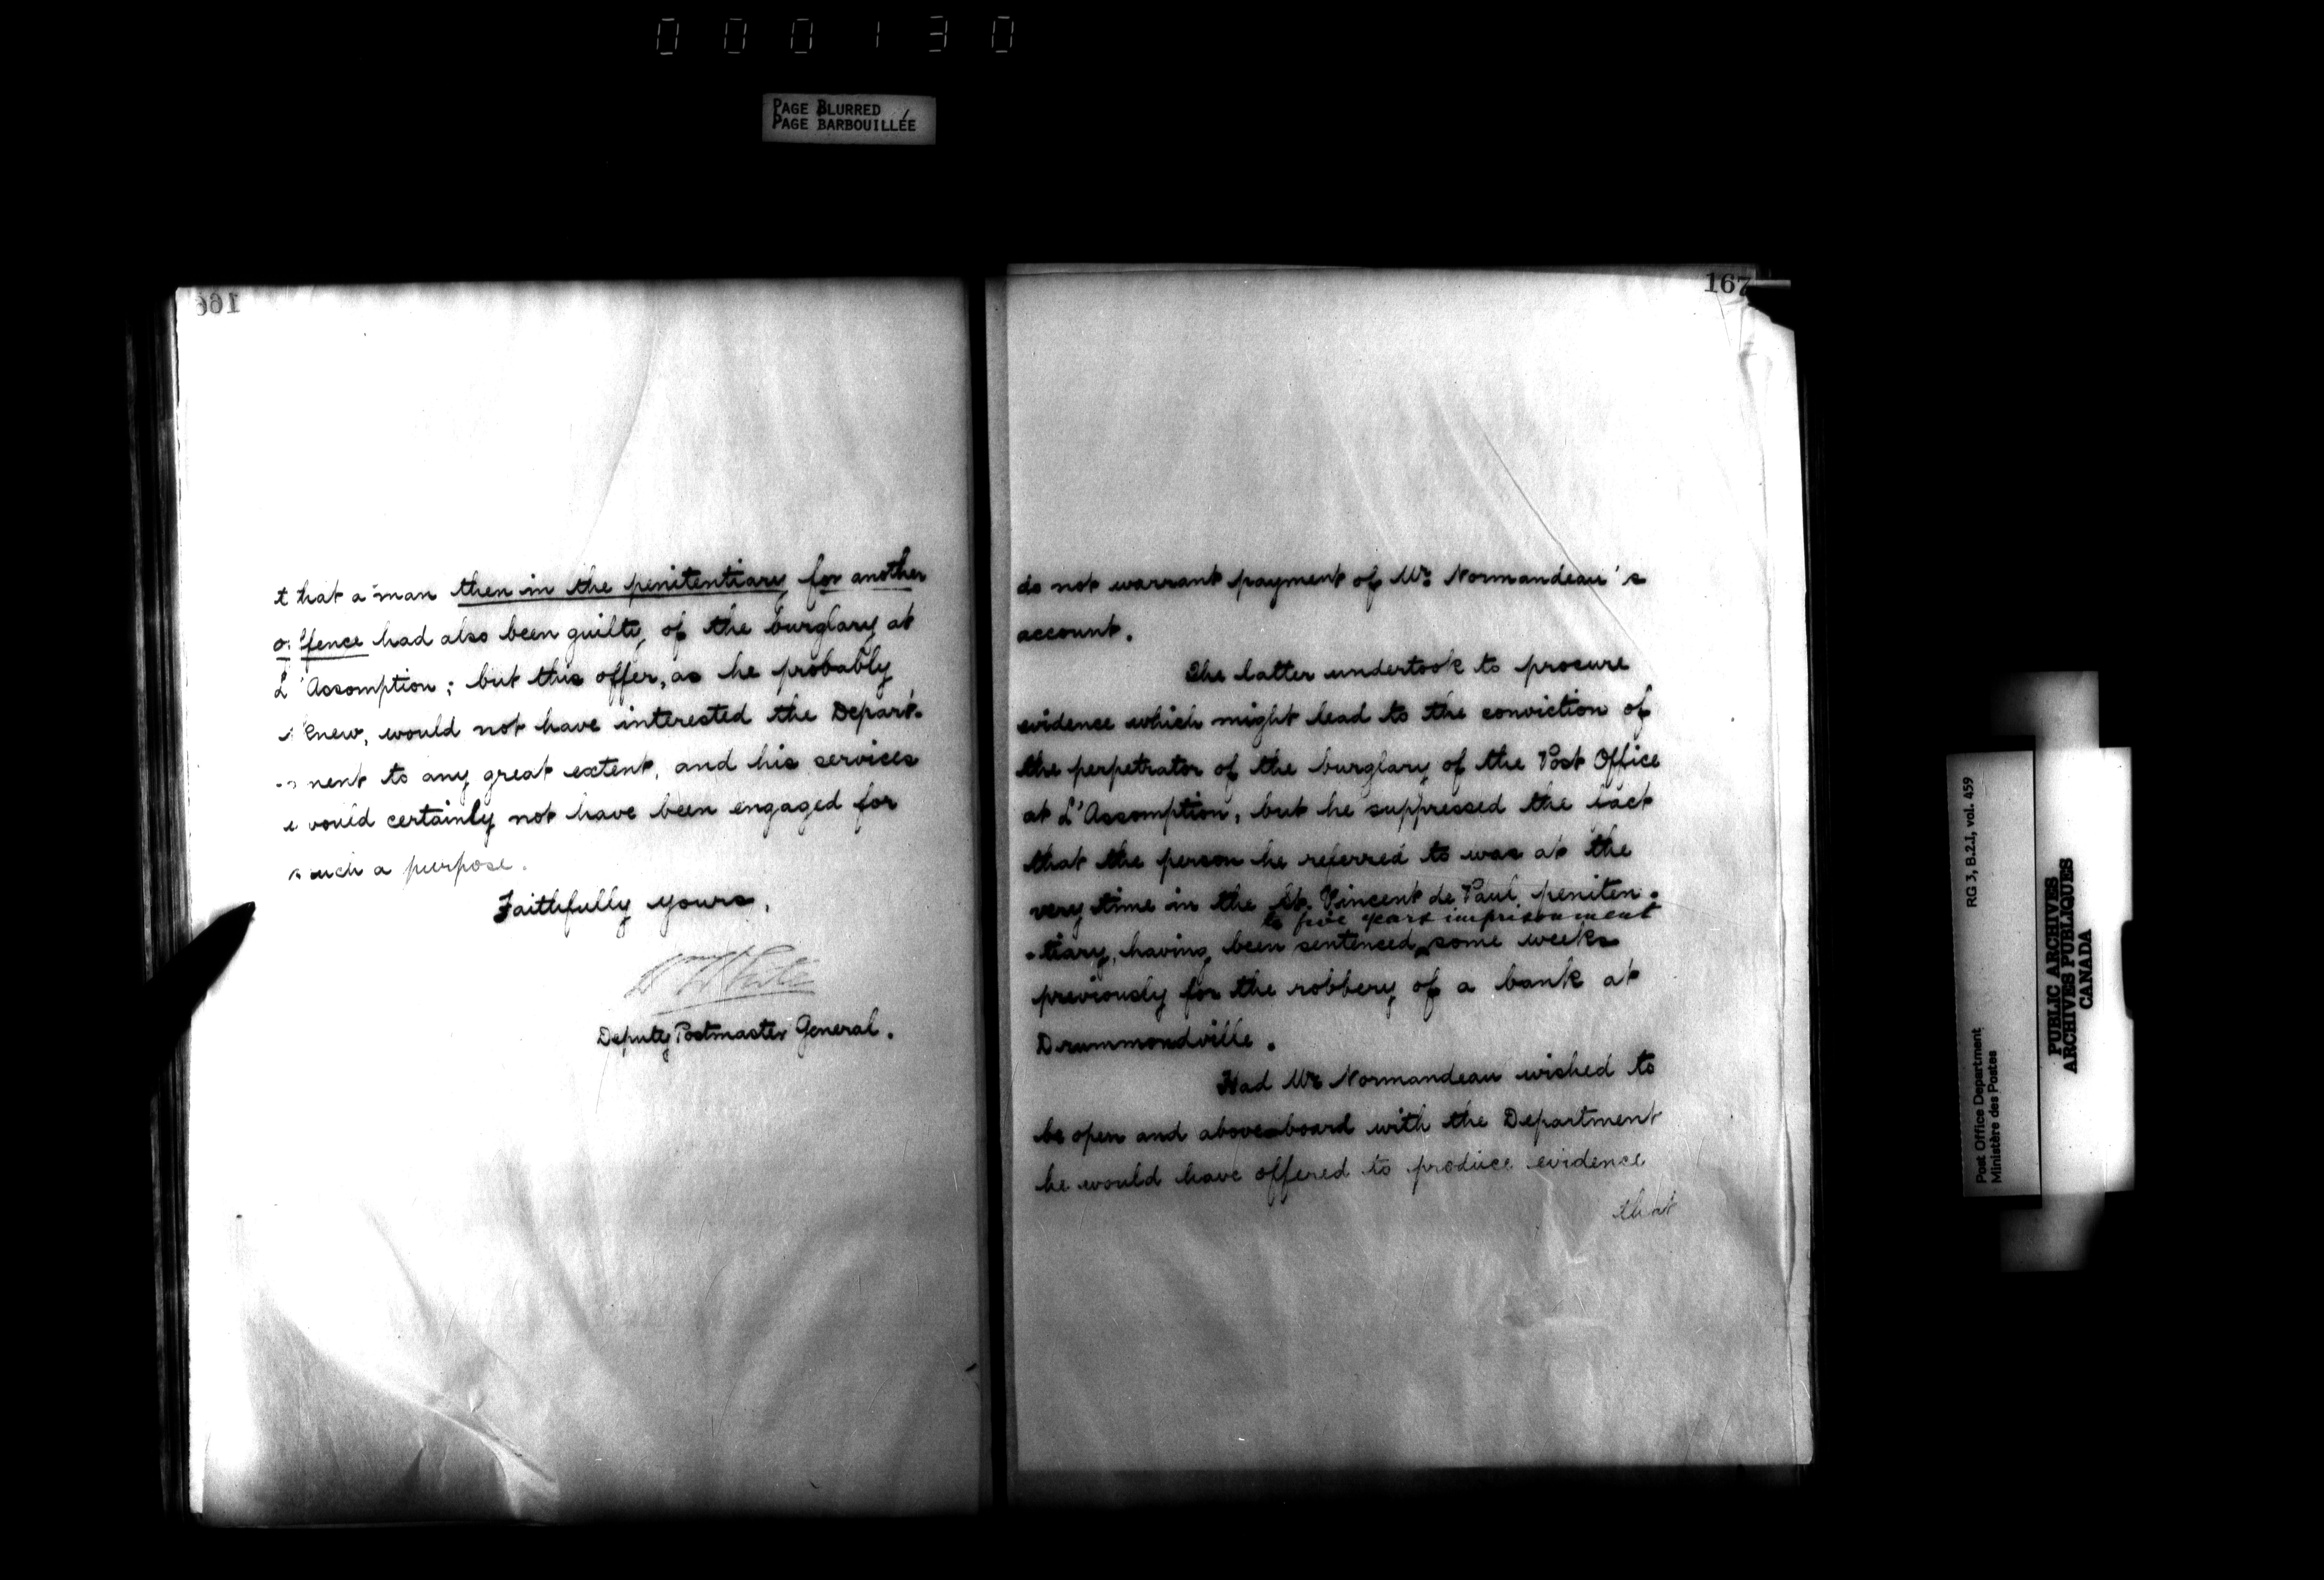 000130
PAGE BLURRED
PAGE BARBOUILLÉE
166
that a man then in the penitentiary for another
offence had also been guilty of the burglary at
L'Assomption; but this offer, as he probably
knew, would not have interested the Depart-
-ment to any great extent, and his services
would certainly not have been engaged for
such a purpose.
Faithfully yours,
W White
Deputy Postmaster General.
167
do not warrant payment of Mr. Normandeau's
account.
The latter undertook to procure
evidence which might lead to the conviction of
the perpetrator of the burglary of the Post Office
at L'Assomption, but he suppressed the fact
that the person he referred to was at the
very time in the St. Vincent de Paul peniten-
to five years imprisonment
-tiary, having been sentenced some weeks
previously for the robbery of a bank at
Drummondville.
Had Mr Normandeau wished to
be open and above-board with the Department
he would have offered to produce evidence
that
RG 3, B.2.1, vol. 459
Post Office Department
Ministère des Postes
PUBLIC ARCHIVES
ARCHIVES PUBLIQUES
CANADA